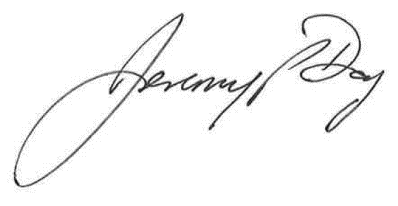 Jeremy P Day